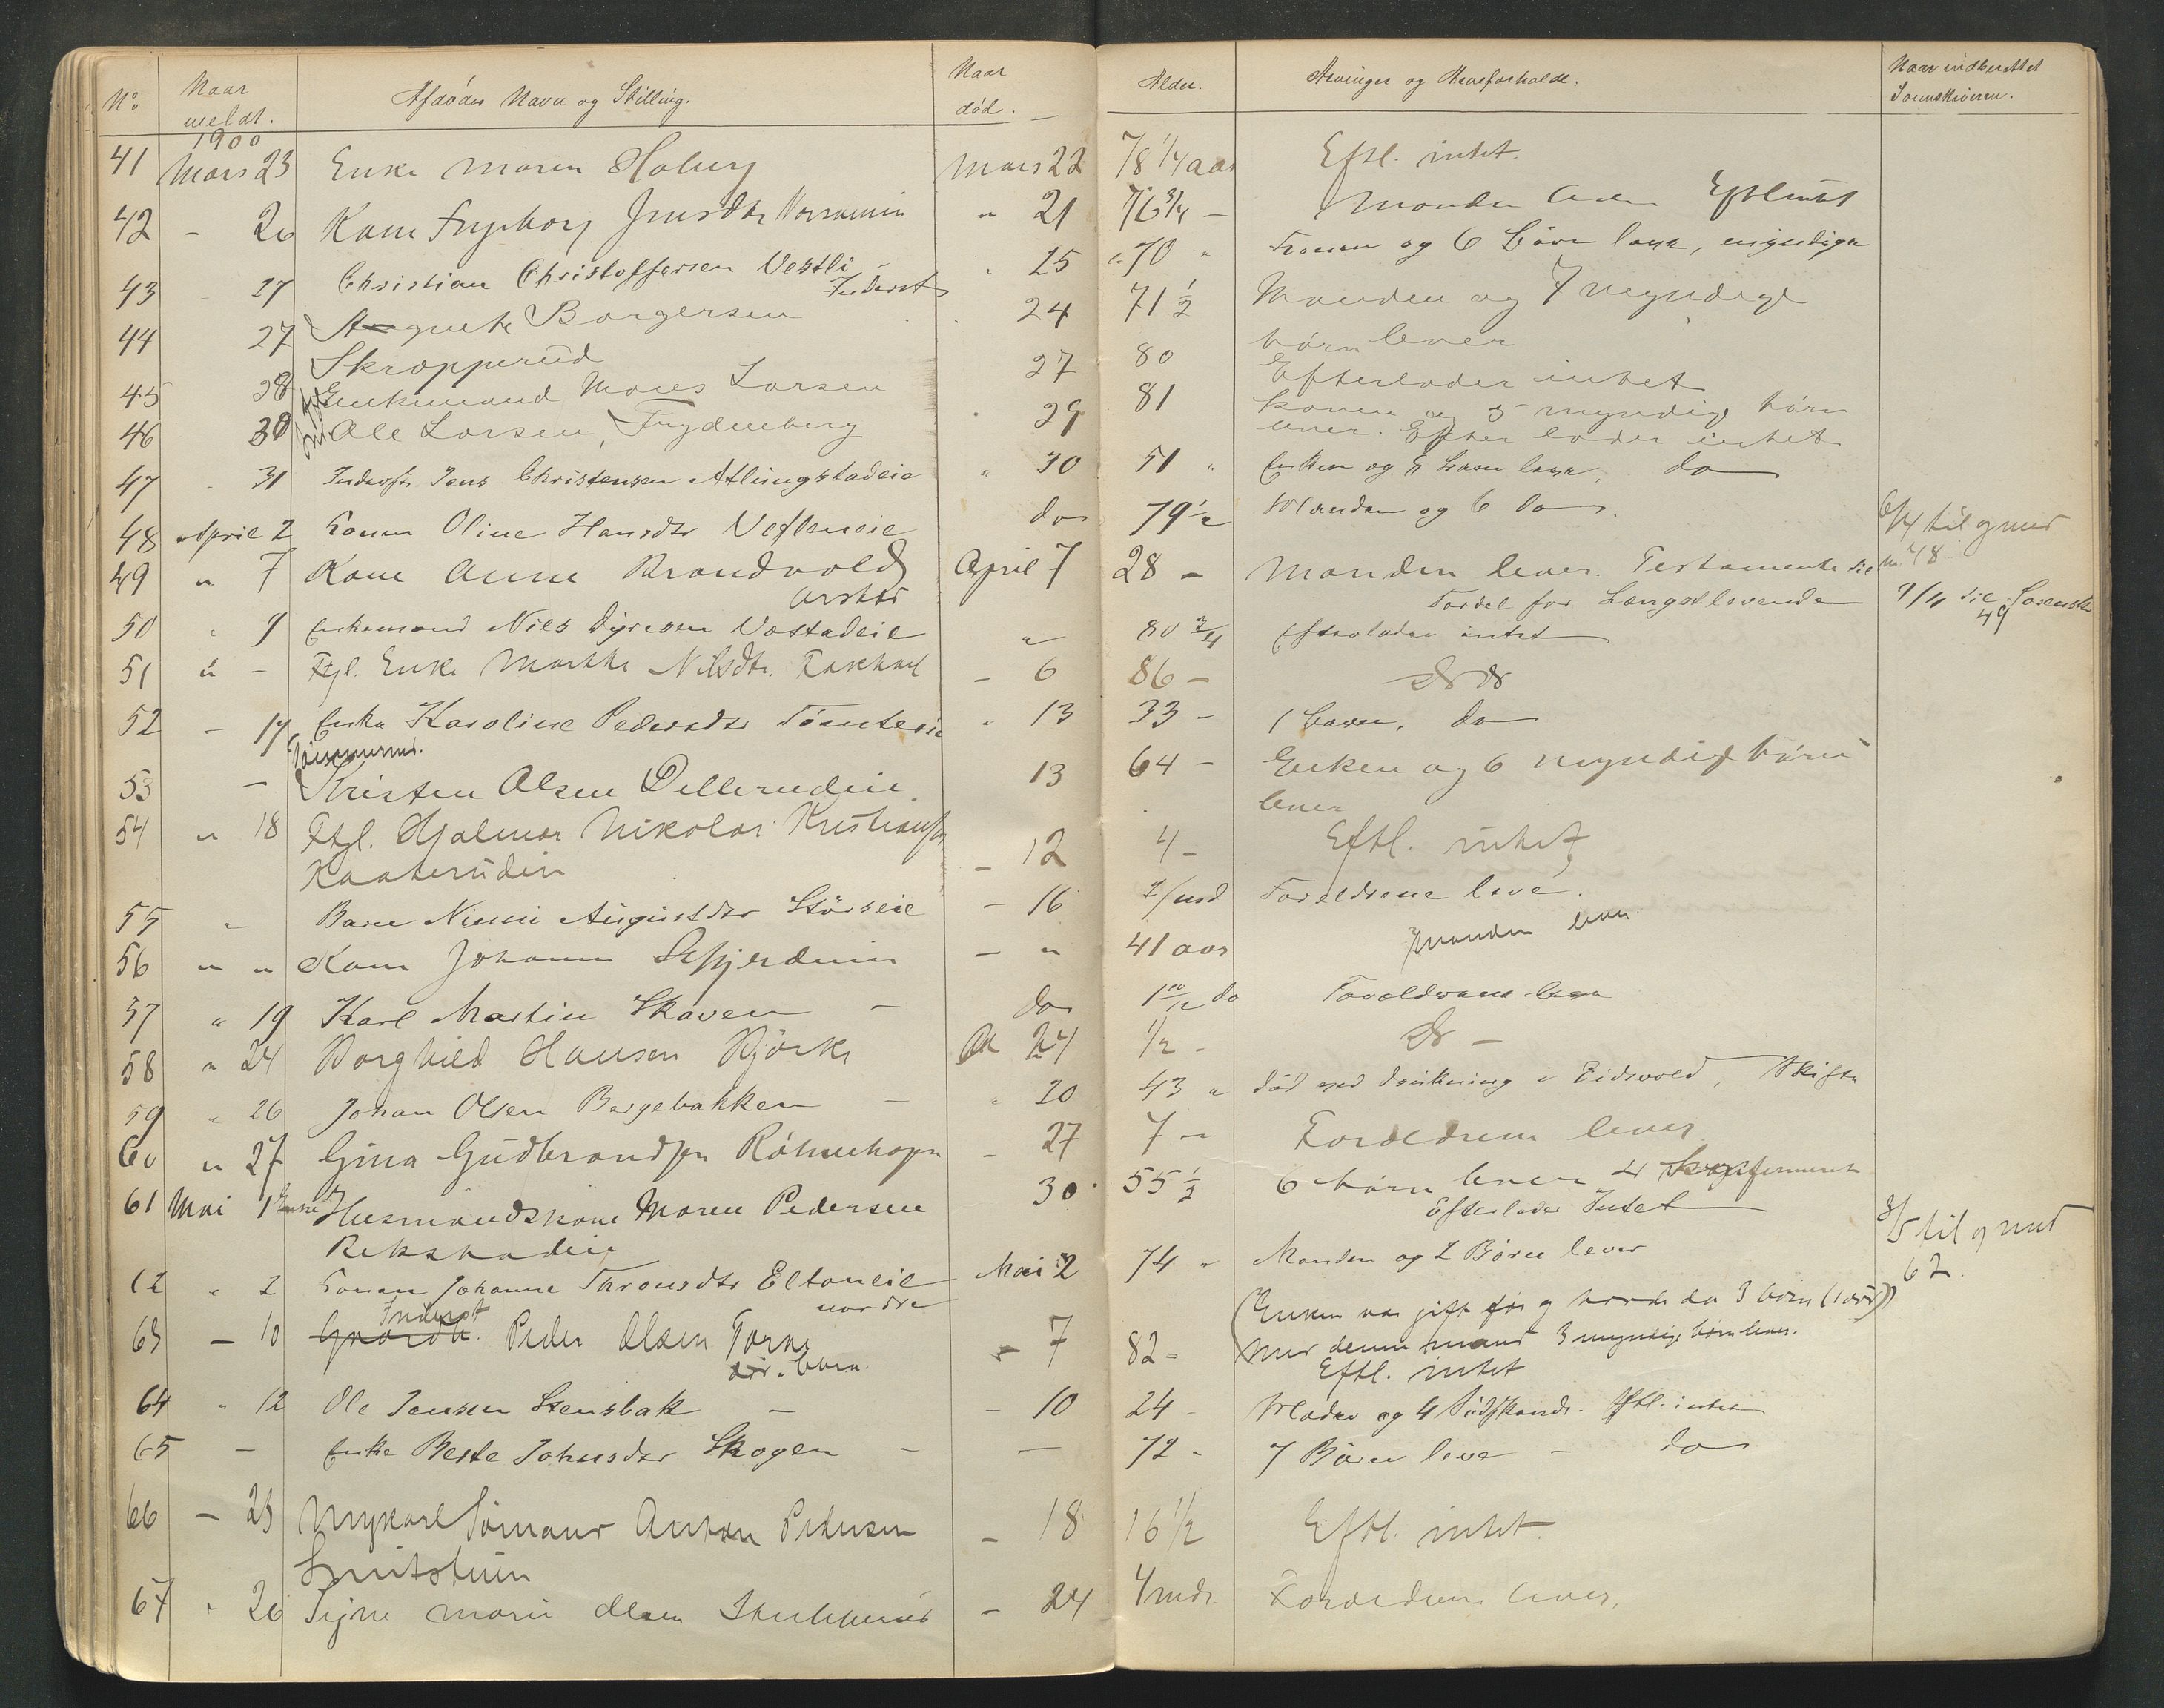 No Naar meldt. Afdødes Navn og Stilling. Naar død. Alder. Arvinger og Arveforholde. Naar indberettet Sorenskriveren.
1900
41 Mars 23 Enke Maren Hoberg Mars 22 78 1/4 aar Eftl. intet.
42 - 26 Kone Ingeborg Jensdtr " 21 76 3/4 - Manden lever Eftl intet
43 - 27 Christian Christoffersen Vestli - Inderst " 25 70 " Konen og 6 Børn leve, myndige
44 27 Agnete Borgersen 24 71 1/2 Manden og 7 myndige
Skropperud børn lever
45 28 Enkemand Mons Larsen 27 80 Efterlader intet
46 30 Ole Larsen, Frydenberg 29 81 konen og 5 myndige børn
lever. Efterlader intet
47 - 31 Inderst Jens Christensen " 30 51 " Enken og 5 Børn leve, do
48 April 2 Konen Oline Hansdtr do 79 1/2 Manden og 6 do. 6/4 til grund
No. 48
49 " 7 Kone Anne Brandvold April 7 28 - Manden lever. Testamente til
Fordel for Længstlevende 9/4 til Sorensk
49
50 " 9 Enkemand Nils " 80 3/4 Efterlader intet
51 " - Ftgl. Enke Marthe Nilsdtr. - 6 86 - do do
52 - 17 Enke Karoline Pedersdtr Tømteeie " 13 33 - 1 Barn, do
53 - Kristen Olsen Dellerudeie 13 64 - Enken og 6 myndige børn
lever
54 " 18 Ftgl. Hjalmar Nikolai Kristiansen
- 12 4 - Eftl. intet
55 " Barn Augustdtr - 16 7/md Forældrene leve.
56 " " Kone Johanne - " 41 aar Manden lever.
57 " 19 Karl Martin Skaven - do 1 10/12 do Forældrene leve
58 " 24 Borghild Hansen Bjørke 24 1/2 - do -
59 " 26 Johan Olsen Bergebakken - " 20 43 " død ved drukning i Eidsvold, Skifte
60 " 27 Gina Gudbrandsen - 27 7 - Forældrene lever
61 Mai 1 Husmandskone Maren Pedersen 30 55 1/2 6 børn lever 4
Rekstadeie Efterlader Intet 8/5 til grund
62.
62 " 2 Konen Johanne Eltoneie nordre Mai 2 74 " Manden og 2 Børn lever
63 - 10 Inderst Peder Olsen - 7 82 - (Enken var gift før og havde da 3 børn
med denne mand 3 myndige børn lever.
Eftl. intet
64 " 12 Ole Jensen Stensbak - - 10 24 - Moder og 4 Sødskende. Eftl. intet
65 - Enke Berte Johnsdtr Skogen - - 72 - 7 Børn leve - do
66 - 23 Ungkarl Sømand Anton Pedersen - 18 16 1/2 Eftl. intet.
67 " 26 Signe Marie Olsen - 24 4 mdr. Forældrene lever.